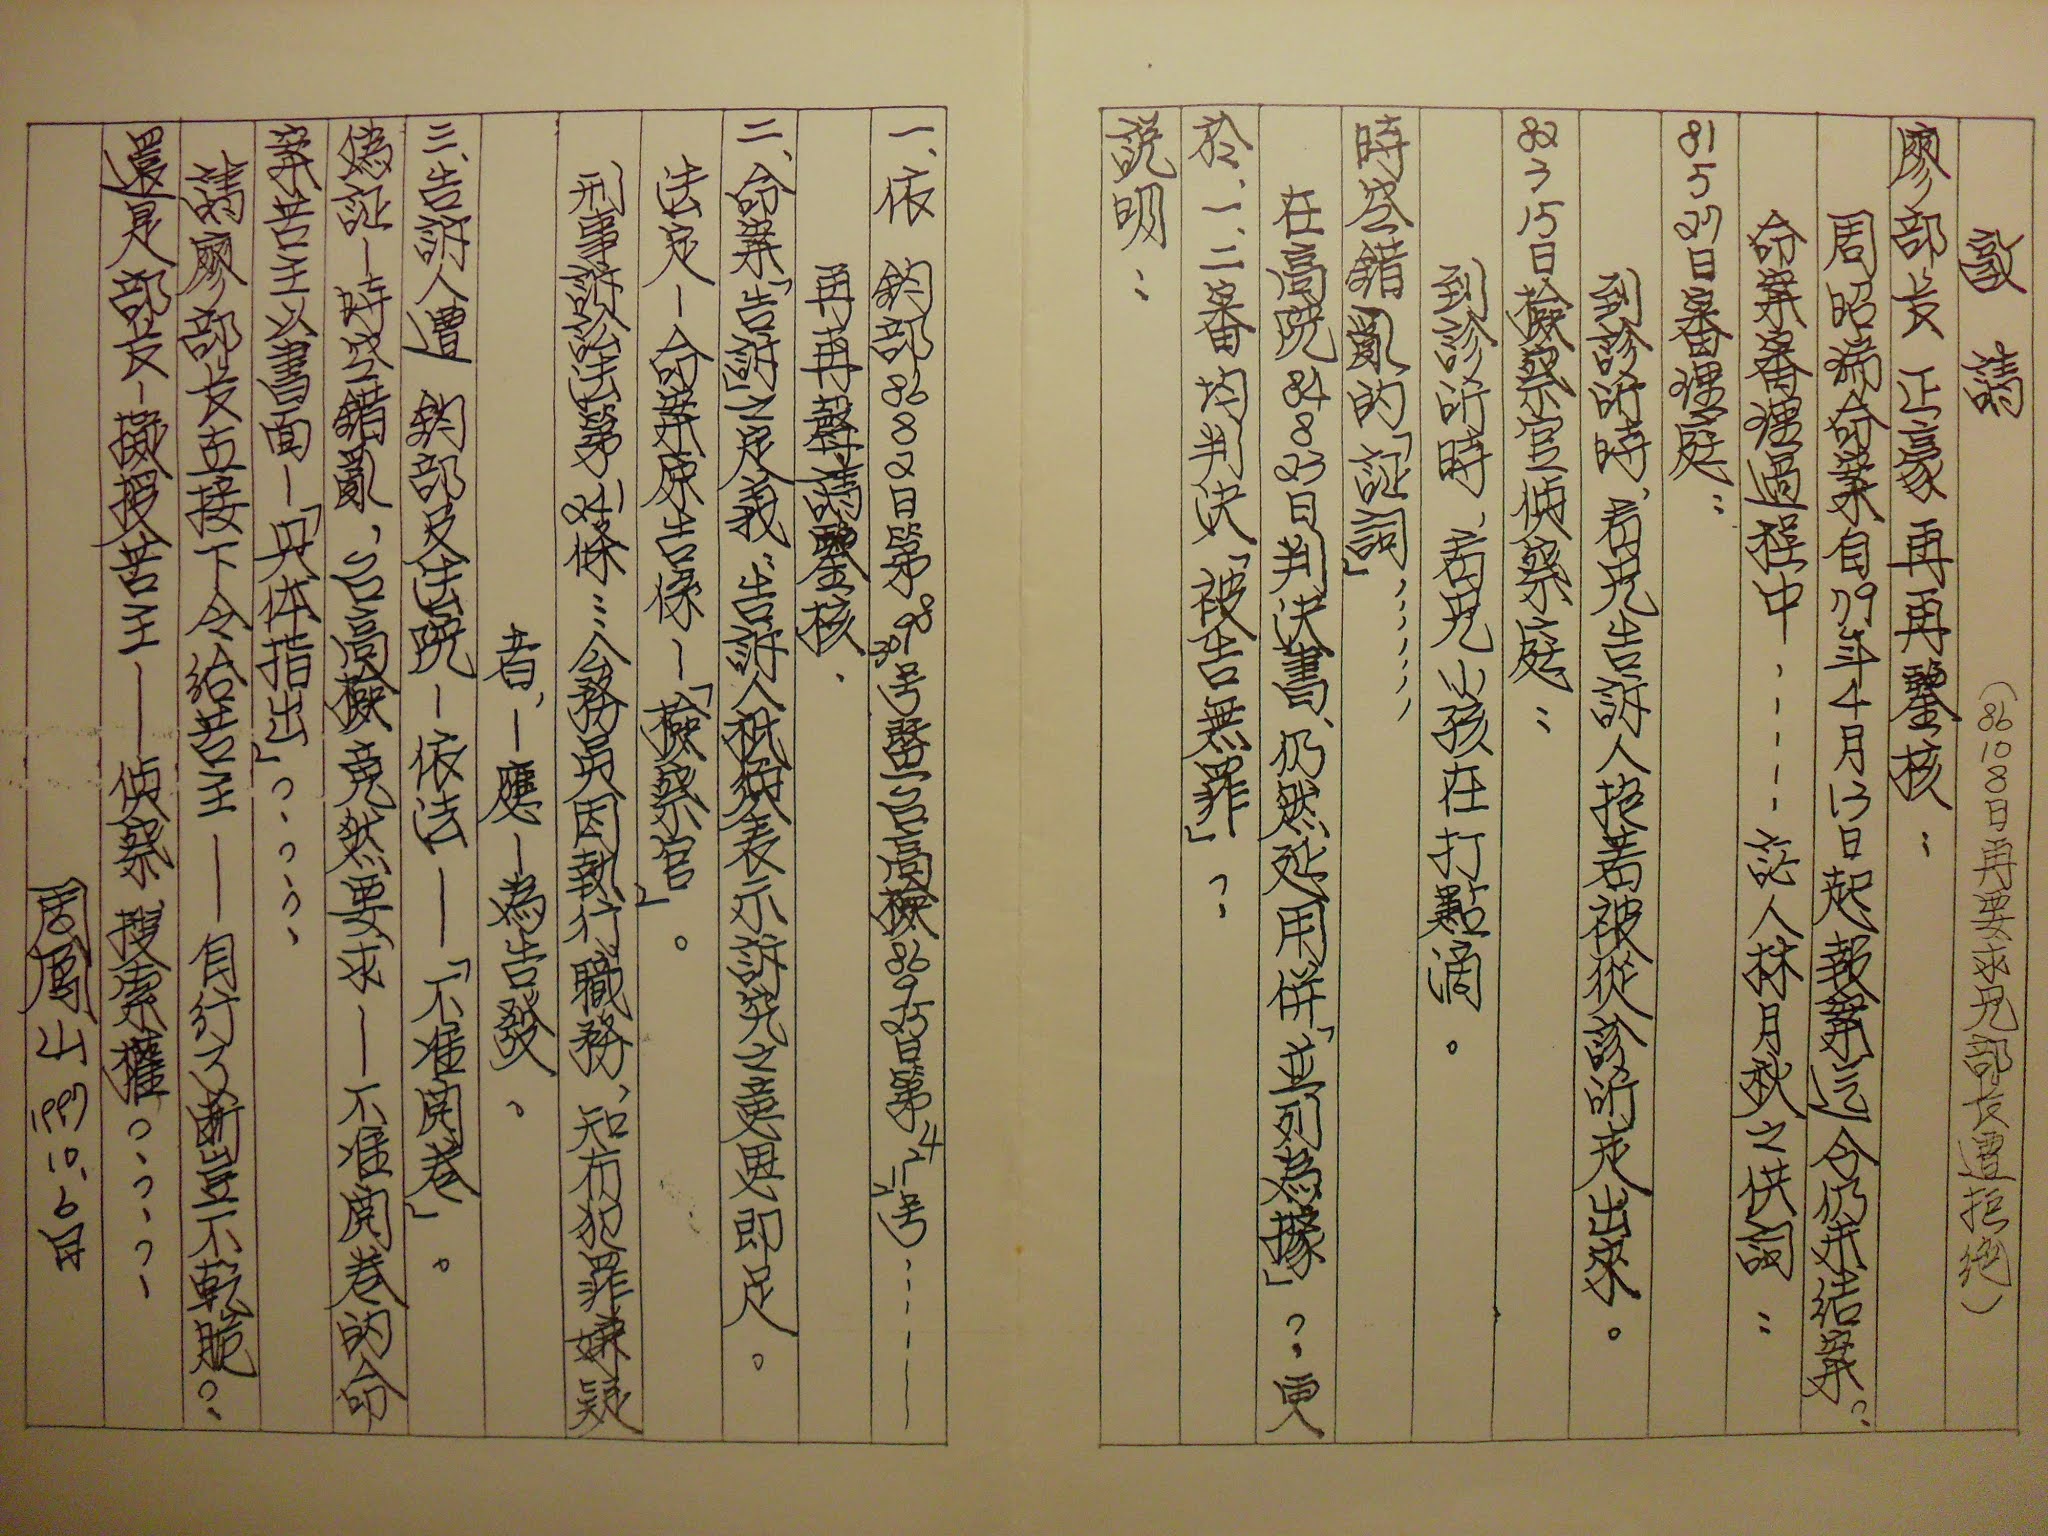 敬請 (86 10 8日再要求見部長遭拒絕)
廖部長 正豪 再再鑒核：
周昭 命案自79年4月13日起報案迄今仍未結案?.
命案審理過程中．----証人林月秋之供詞：
81 5 27日審理庭：
到診所時、看見告訴人抱著被從診所走出來。
82 3 15日檢察官偵察庭：
到診所時、看見小孩在打點滴。
時空錯亂的「証詞」
在高院84 8 23日判決書、仍然延用併「並列為據」?.更
於一、二審均判決「被告無罪」?.
說明：
一、依 鈞部86 8 2日第 号 高檢86 9 25日第 号
再再聲請鑒核．
二、命案「告訴」之定義："告訴人祇須表示訴究之意思即足。
法定－命案原告係－「檢察官」。
刑事訴訟法第241條…公務員因執行職務、知有犯罪嫌疑
者，－應－為告發。
三、告訴人遭 鈞部及法院－依法－「不准閱卷」。
偽証－時空錯亂，台高檢竟然要求－不准閱卷的命
案苦主以書面－「具体指出」?.?.
請廖部長直接下令給苦主－自行了斷豈不乾脆?.
還是部長－擬授苦主－偵察 搜索權?.?.?.
周 山 1997 10.6日